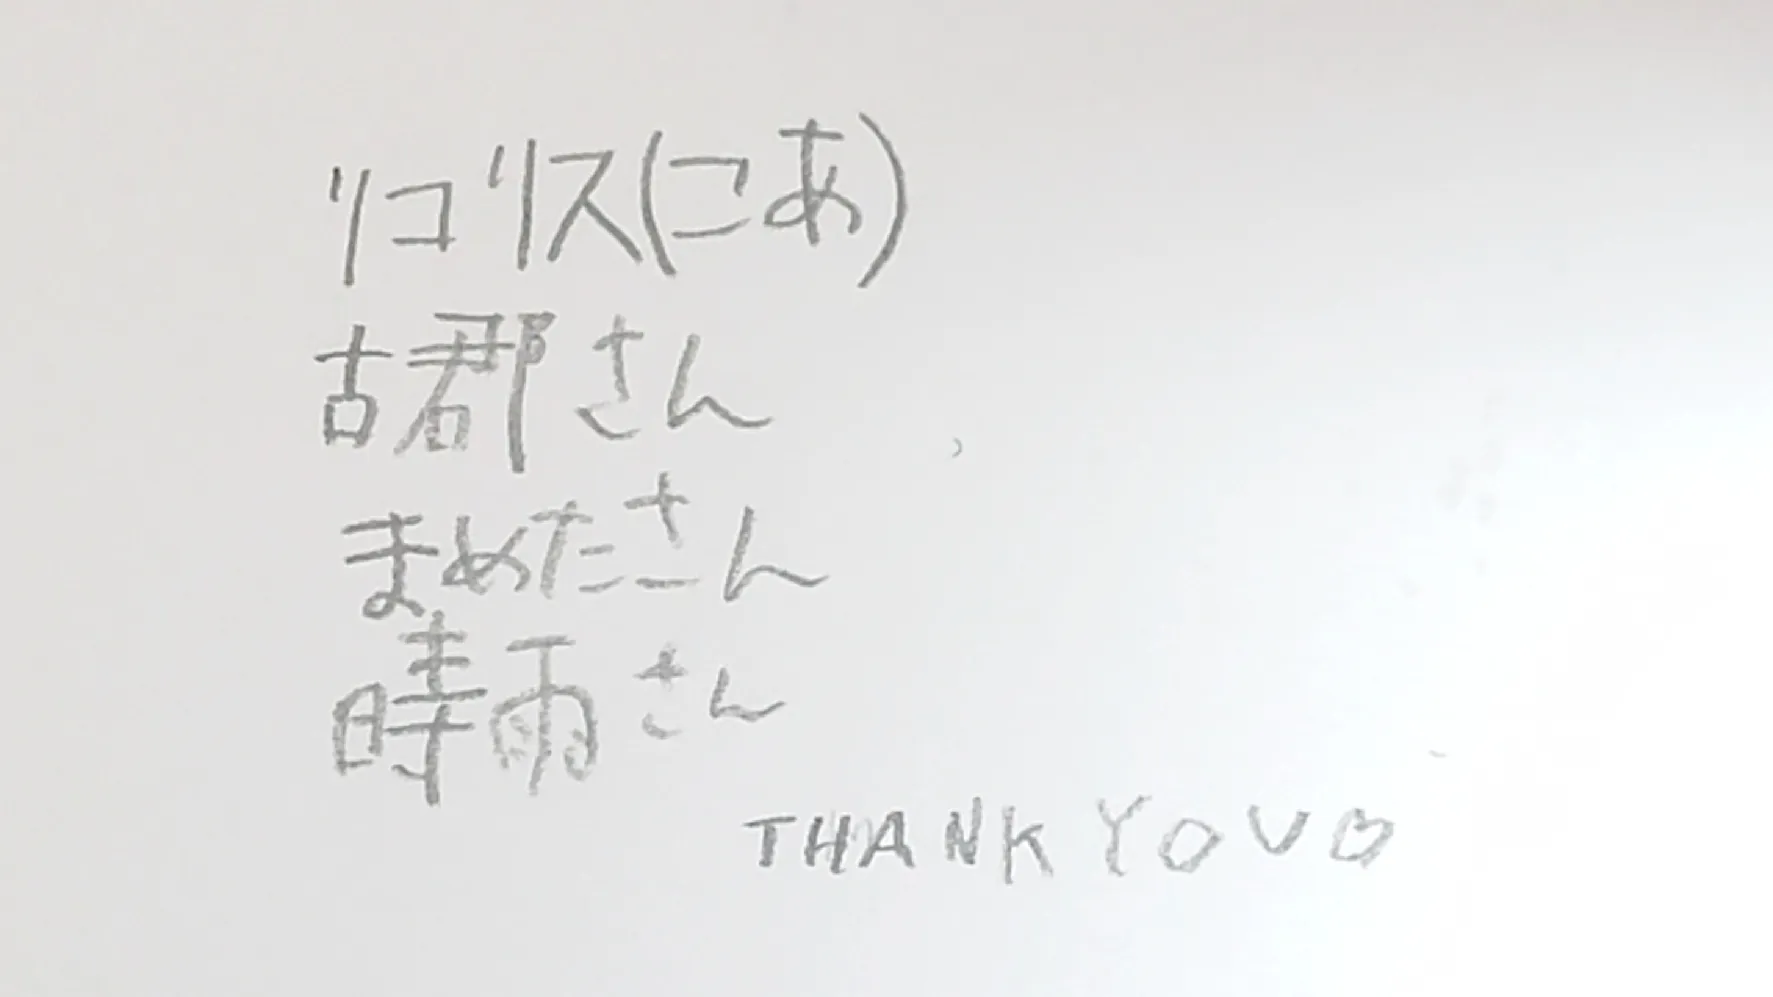 リコリス(こあ)
古郡さん
まめたさん
晴雨さん
THANK YOU♡